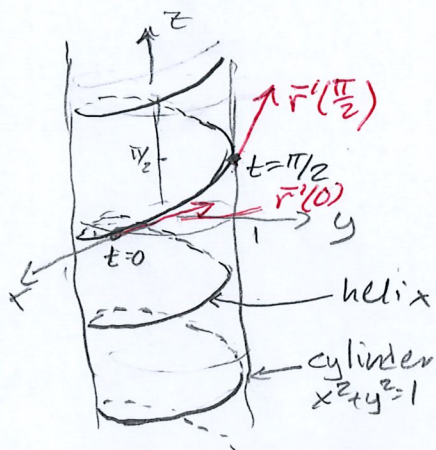 z
r̄'(π/2)
π/2
t=π/2
r̄'(0)
1
y
t=0
x
helix
cylinder
x²+y²=1